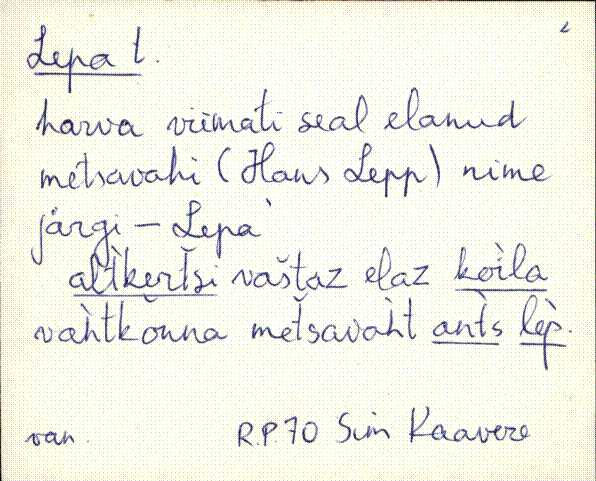 Lepa t.
harva viimati seal elanud
metsavahi (Hans Lepp) nime
järgi – Lepa`
alt̀kert̀si vaštaz elaz koìla
vah̀tkonna metsavah̀t ant̀s lèp̀.
van. R.P. 70 Sim Kaavere